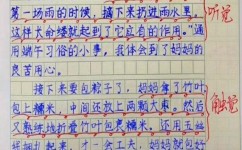 第一场雨的时候，摘下来扔进雨水里，
这样大命缕就起到了它应有的作用。"通
用端午习俗的小事，我体会到了妈妈的
良苦用心。
接下来要包粽子了，妈妈拿了竹叶
包上糯米，中间还放上两颗大枣。然后
又熟练地折叠竹叶包裹糯米，还用五
捆扎起来，才一会工夫，妈妈就包好
听觉
触觉